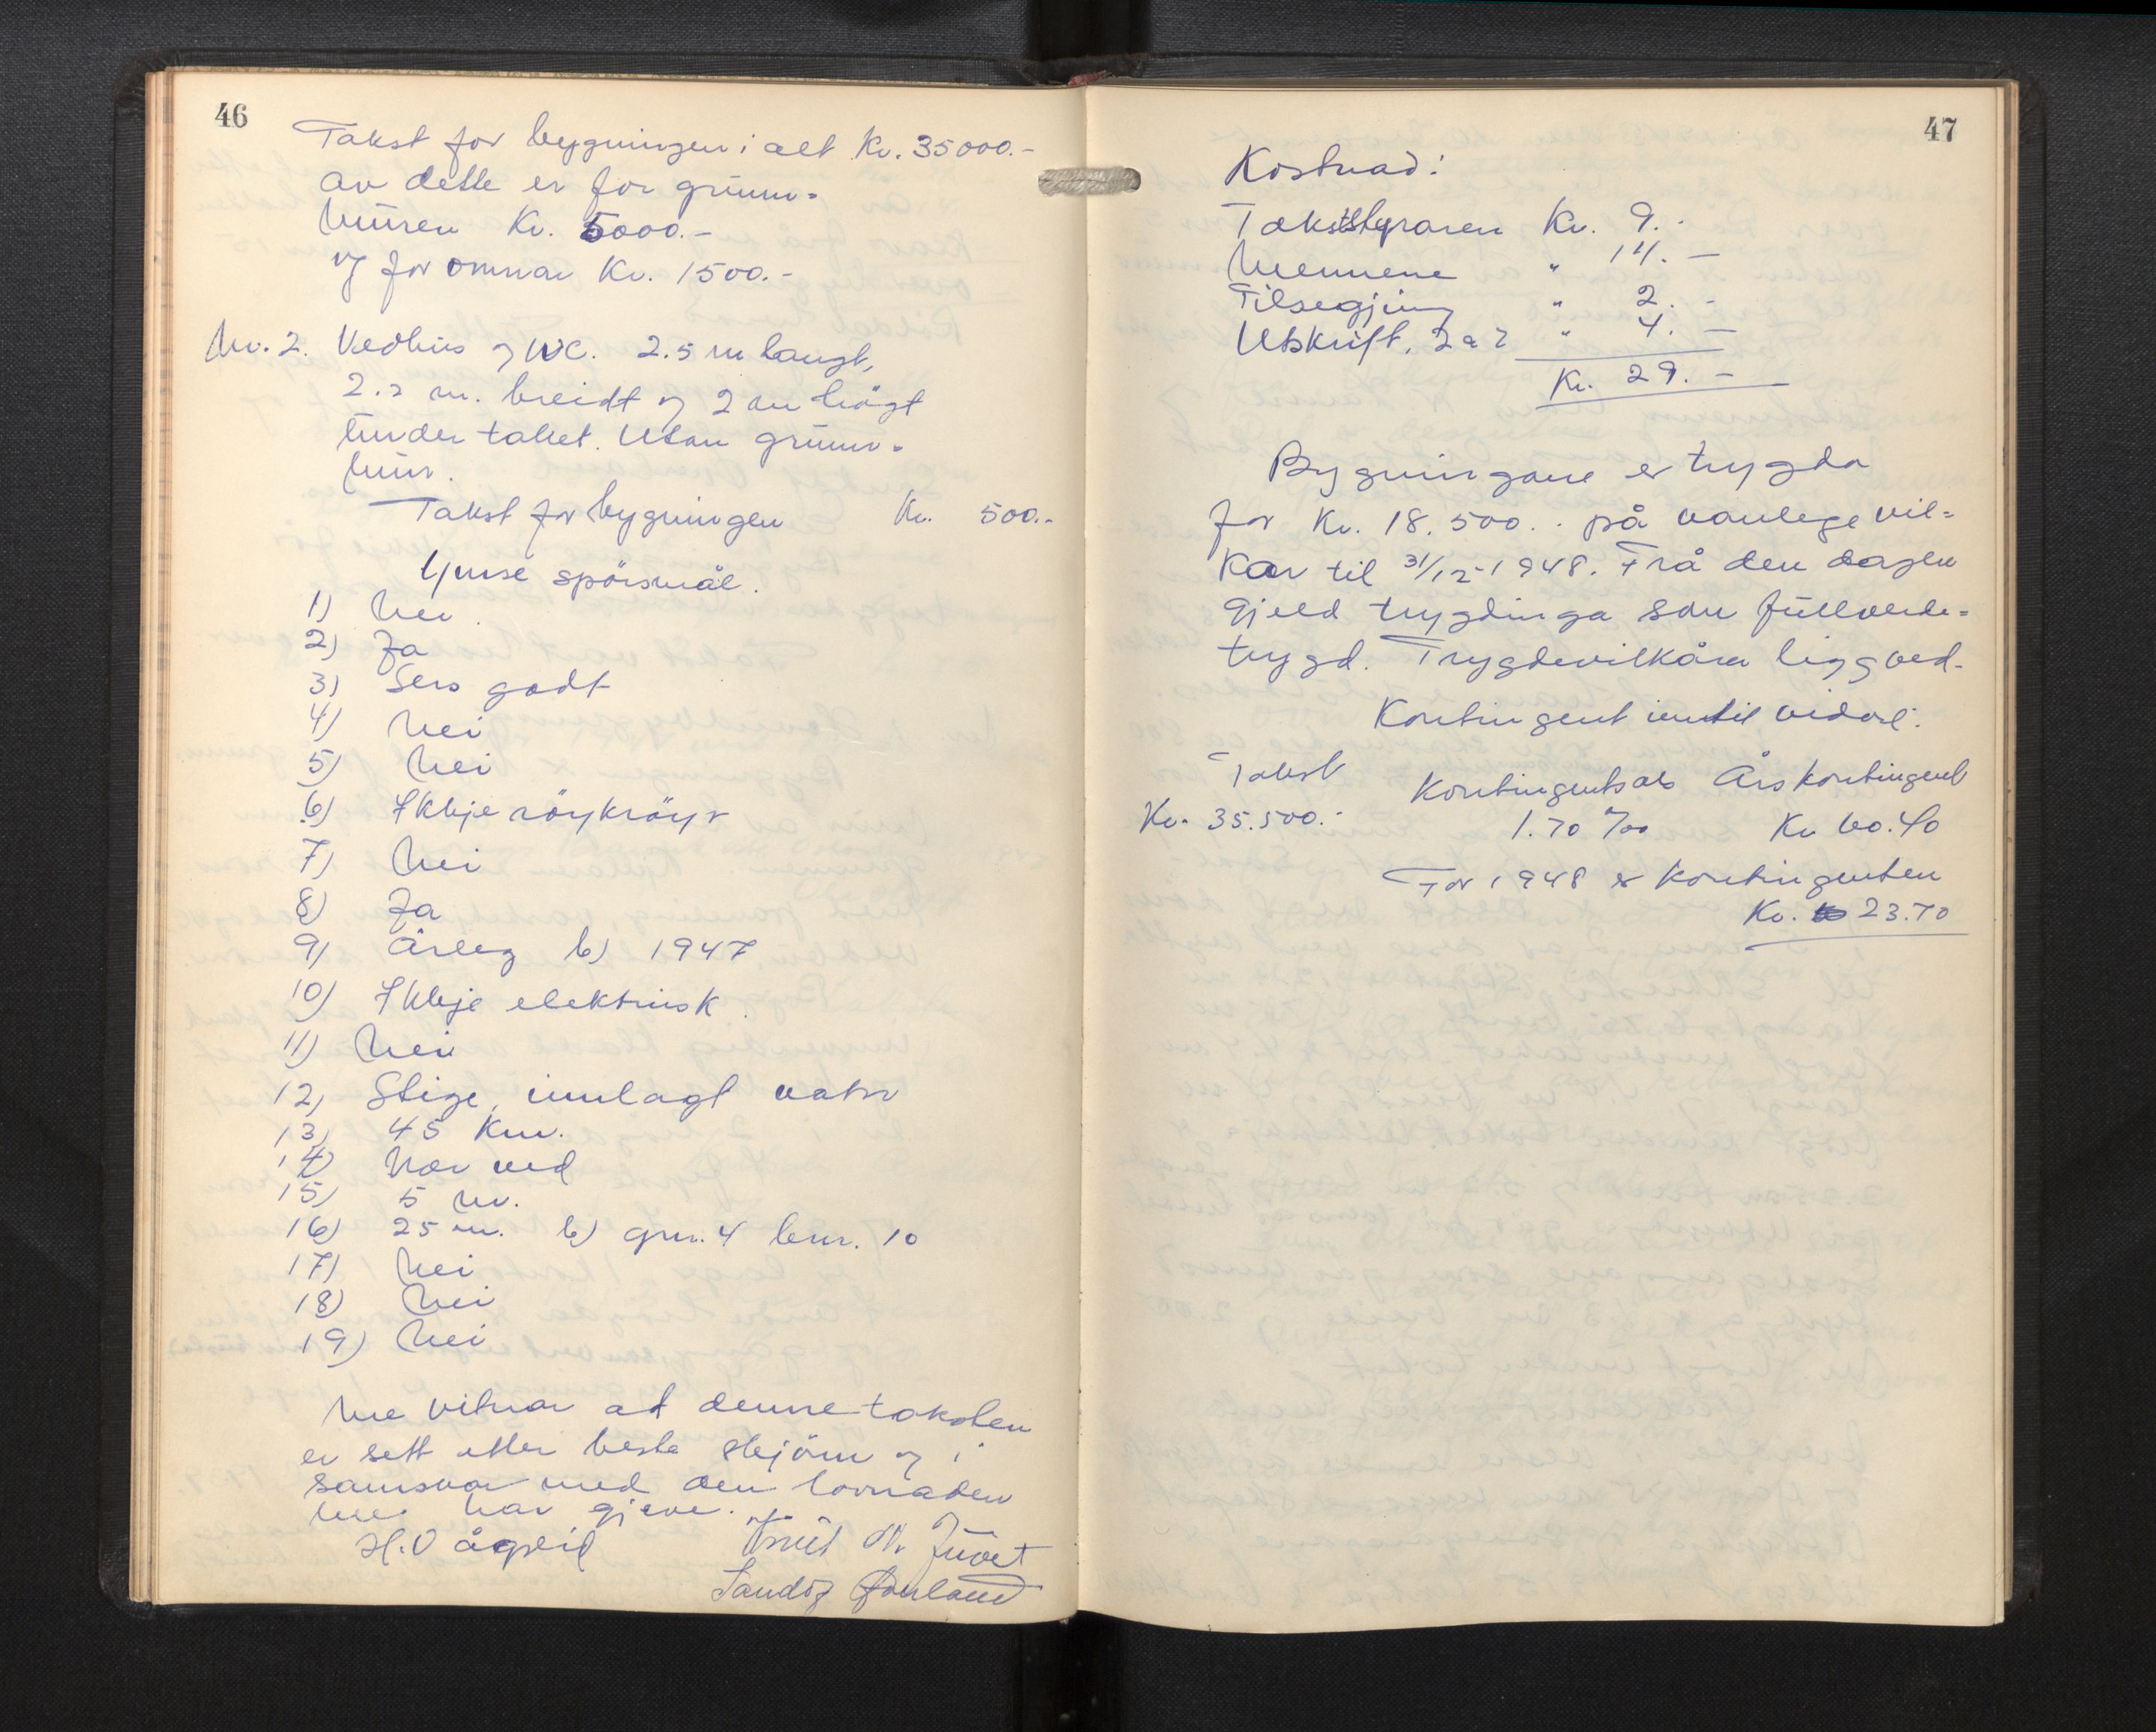 46
Takst for bygningen i alt Kr. 35000.-
av dette er for grunn-
muren Kr. 5000.-
og for omnar Kr. 1500.-
Nr. 2. Vedhus og WC. 2.5 m langt,
2.2 m. breidt og 2 m högt
under taket. Utan grunn-
mur.
Takst for bygningen Kr. 500.-
Ymse spörsmål.
1) Nei.
2) Ja
3) Sers godt
4) Nei
5) Nei
6) Ikkje röykröyr
7) Nei
8) Ja
9) Årleg b) 1947
10) Ikkje elektrisk.
11) Nei
12) Stige, innlagt vatn
13) 45 km.
14) Nær ved
15) 5 m.
16) 25 m. b) gnr. 4 bnr. 10
17) Nei
18) Nei
19) Nei
Me vitnar at denne taksten
er sett etter beste skjönn og i
samsvar med den lovnaden
me har gjeve.
H. O Ågreid Knut N. Juvet
Sandög
47
Kostnad:
Takststyraren Kr. 9.-
Mennene " 14.-
Tilsegjing " 2.-
Utskrift, 2 a 2 " 4.-
Kr. 29.-
Bygningane er trygda
for Kr. 18.500.- på vanlege vil-
kår til 31/12-1948. Frå den dagen
gjeld trygdinga som fullverde-
trygd. Trygdevilkåra ligg ved.
Kontingent inntil vidare:
Takst Kontingentsats Årskontingent
Kr. 35.500.- 1.70 ‰ Kr 60.40
For 1948 er kontingenten
Kr. 23.70